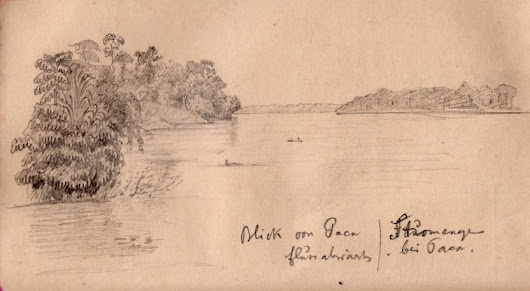 Blick von Paca
flussabwärts
Stromenge
bei Paca.